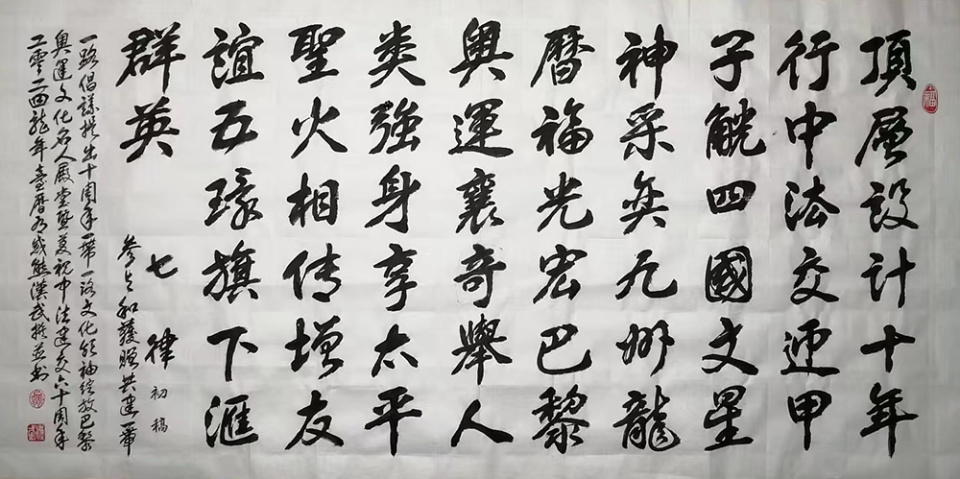 頂層設计十年
行中法交迎甲
子觥四國文星
神采奕九州龍
曆福光宏巴黎
奥運襄奇舉人
类強身享太平
聖火相传增友
誼五環旗下滙
群英
七律初稿
参与和護贈共建一带
一路倡議提出十周年一带一路文化领袖绽放巴黎
奥運文化名人殿堂暨慶祝中法建交六十周年
二零二四龍年臺曆有感熊漢武撰並书